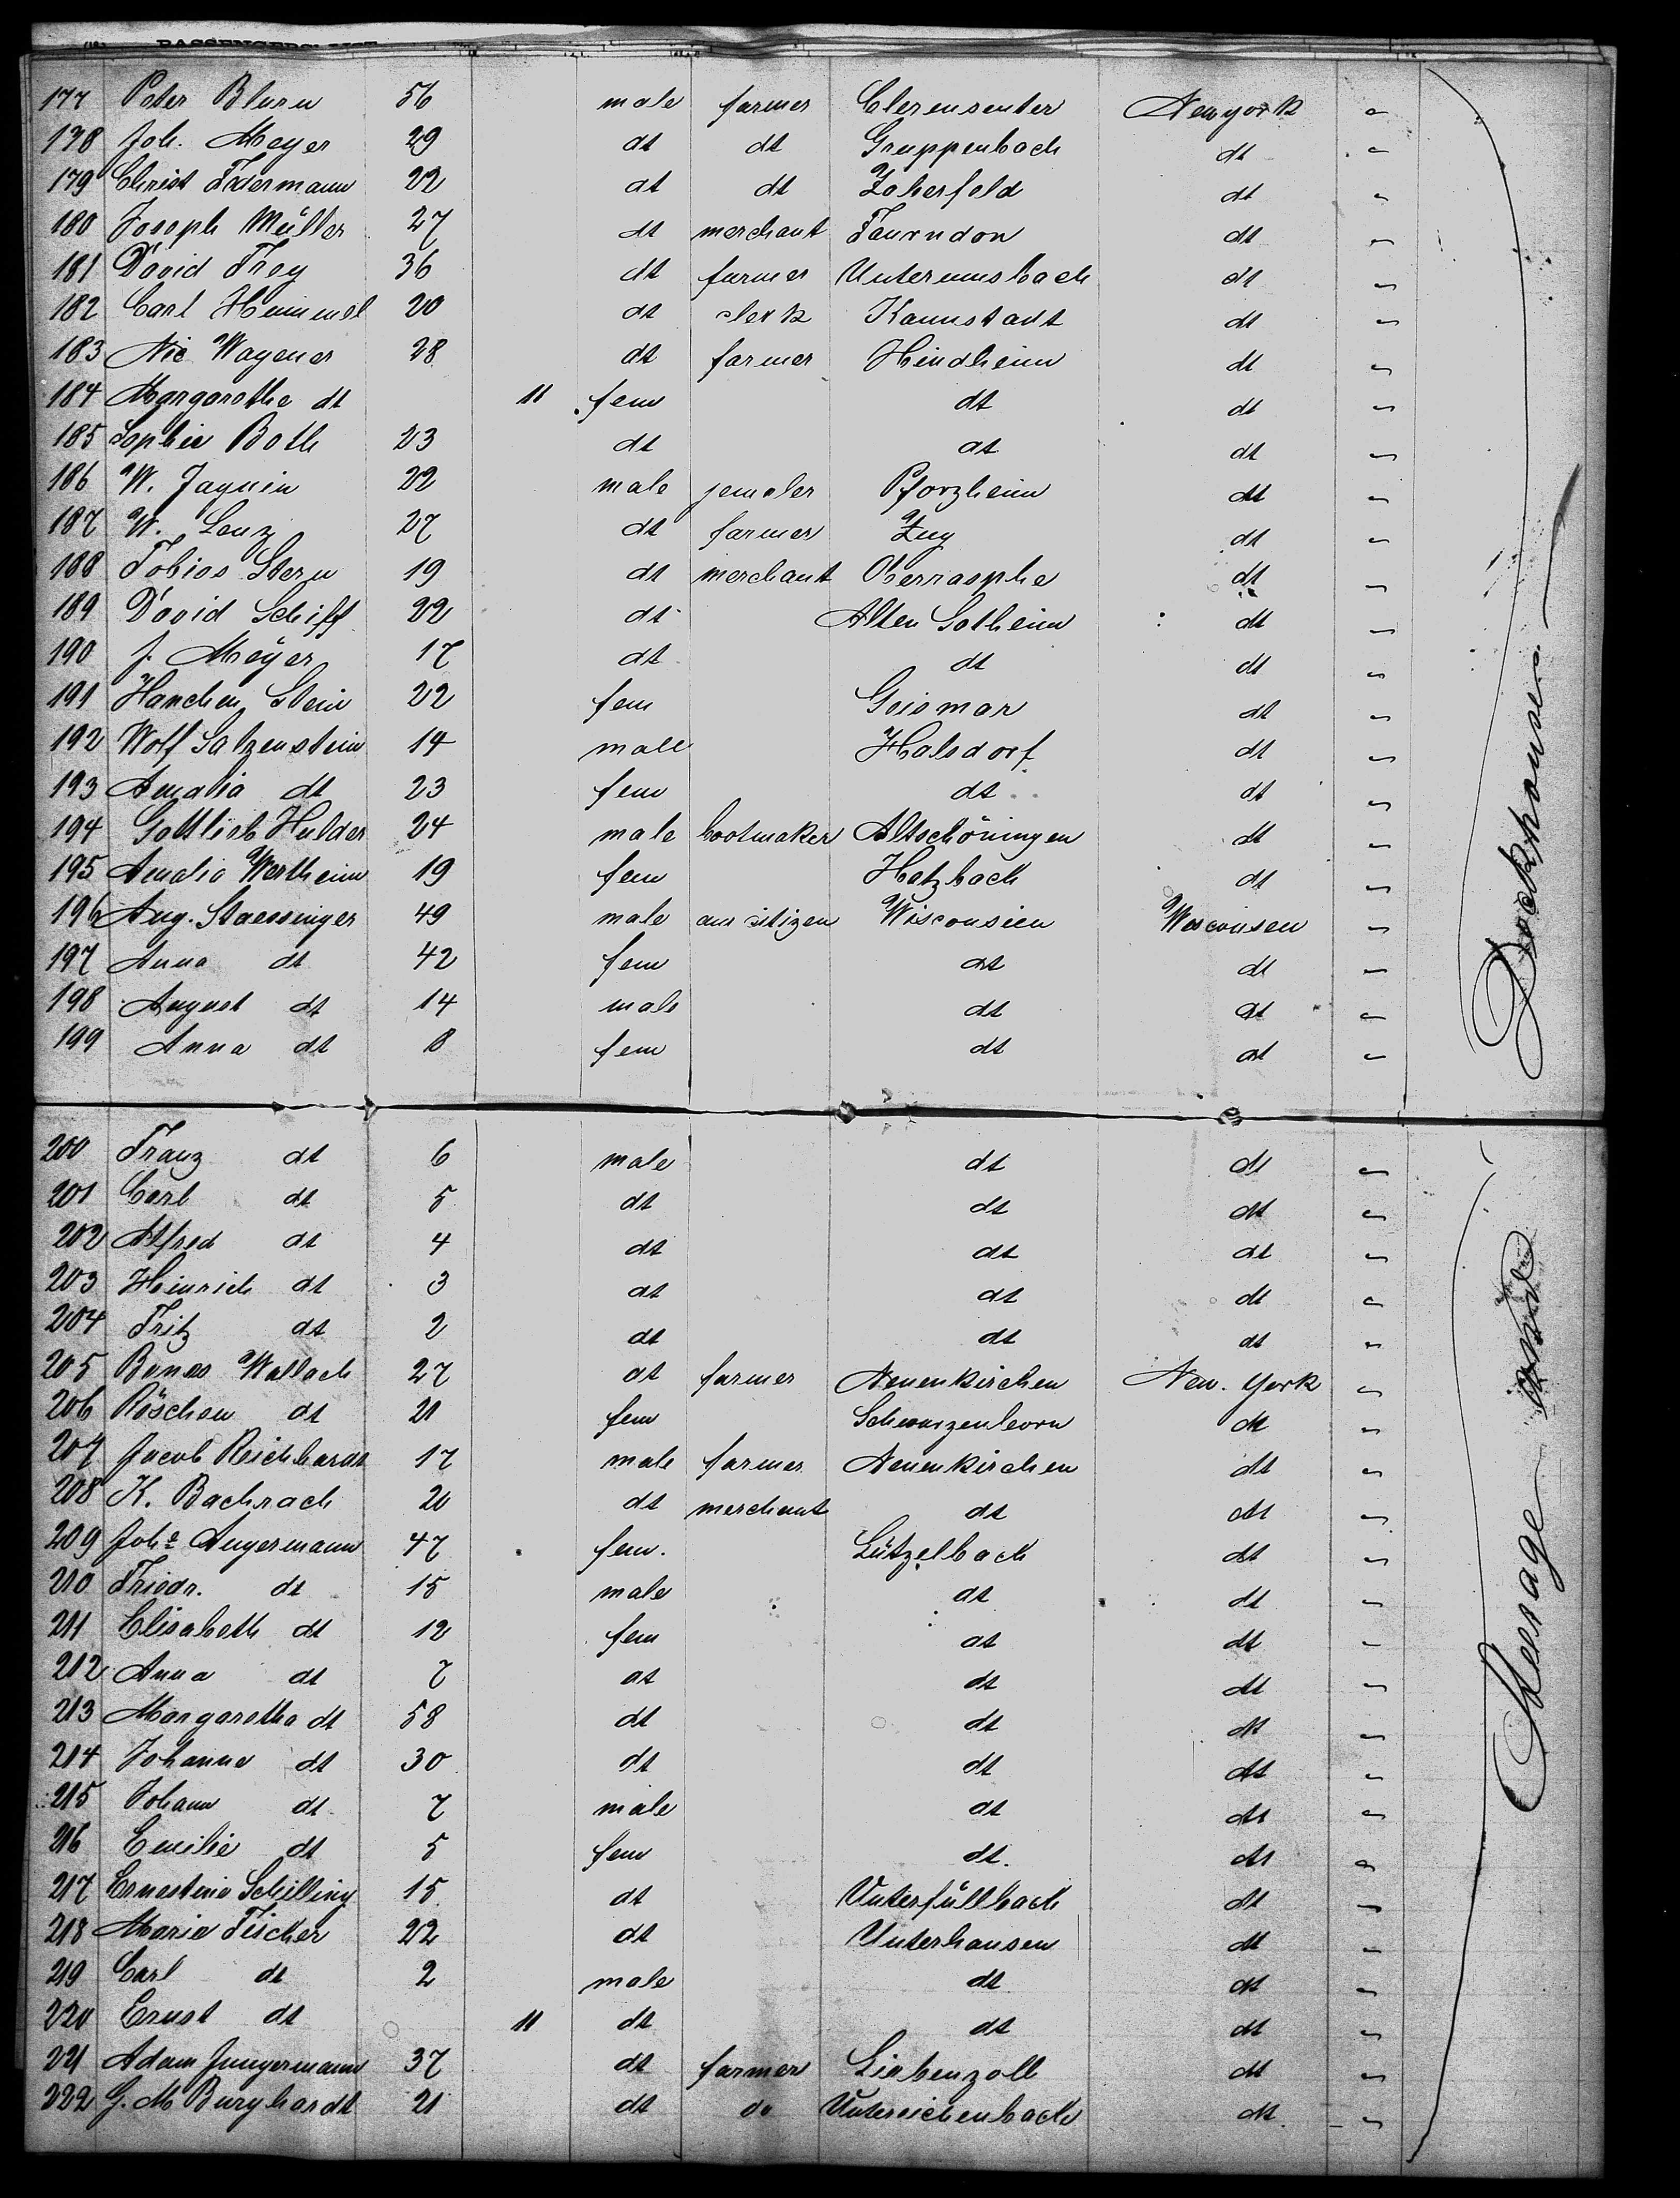 PASSENGERS' LIST
177 Peter Blum 56 male farmer Clerensenter New york "
178 Joh. Meyer 29 dt dt Gruppenbach dt "
179 Christ Fitermann 22 dt dt Zoherfeld dt "
180 Joseph Müller 27 dt merchant Faurndon dt "
181 David Frey 36 dt farmer Unterumsbach dt "
182 Carl Heimendl 20 dt clerk Kannstadt dt "
183 Nic Wagener 28 dt farmer Hindheim dt "
184 Margarethe dt 11 fem dt dt "
185 Sophie Both 23 dt dt dt "
186 W. Jaquin 22 male jemeler Pforzheim dt "
187 W. Lenz 27 dt farmer Zug dt "
188 Tobias Stern 19 dt merchant Oberrasphe dt "
189 David Schiff 22 dt Alten Gotheim dt "
190 J. Meyer 17 dt dt dt "
191 Hanchen Stein 22 fem Geismar dt "
192 Wolf Satzenstein 14 male Halsdorf dt "
193 Amalia dt 23 fem dt dt "
194 Gottlieb Hulder 24 male bootmaker Altschöningen dt "
195 Amalia Wertheim 19 fem Hatzbach dt "
196 Aug. Staessinger 49 male am citizen Wisconsien Wisconsen "
197 Anna dt 42 fem dt dt "
198 August dt 14 male dt dt "
199 Anna dt 8 fem dt dt "
200 Franz dt 6 male dt dt "
201 Carl dt 5 dt dt dt "
202 Alfred dt 4 dt dt dt "
203 Heinrich dt 3 dt dt dt "
204 Fritz dt 2 dt dt dt "
205 Benes Wallach 27 dt farmer Neuenkirchen New. york "
206 Röschen dt 21 fem Schwarzenborn dt "
207 Jacob Reichhardt 17 male farmer Neuenkirchen dt "
208 K. Bachrach 20 dt merchant dt dt "
209 Joh<sup>e</sup> Angermann 47 fem. Lützelbach dt "
210 Friedr. dt 15 male dt dt "
211 Elisabeth dt 12 fem dt dt "
212 Anna dt 7 dt dt dt "
213 Margaretha dt 58 dt dt dt "
214 Johanne dt 30 dt dt dt "
215 Johann dt 7 male dt dt "
216 Emilie dt 5 fem dt. dt "
217 Ernestine Schilling 15 dt Unterfüllbach dt "
218 Marie Fischer 22 dt Unterhausen dt "
219 Carl dt 2 male dt dt "
220 Ernst dt 11 dt dt dt "
221 Adam Jungermann 37 dt farmer Liebenzoll dt "
222 G. M Burghardt 21 dt do Untereichenbach dt "
Steerage and Deckhouse